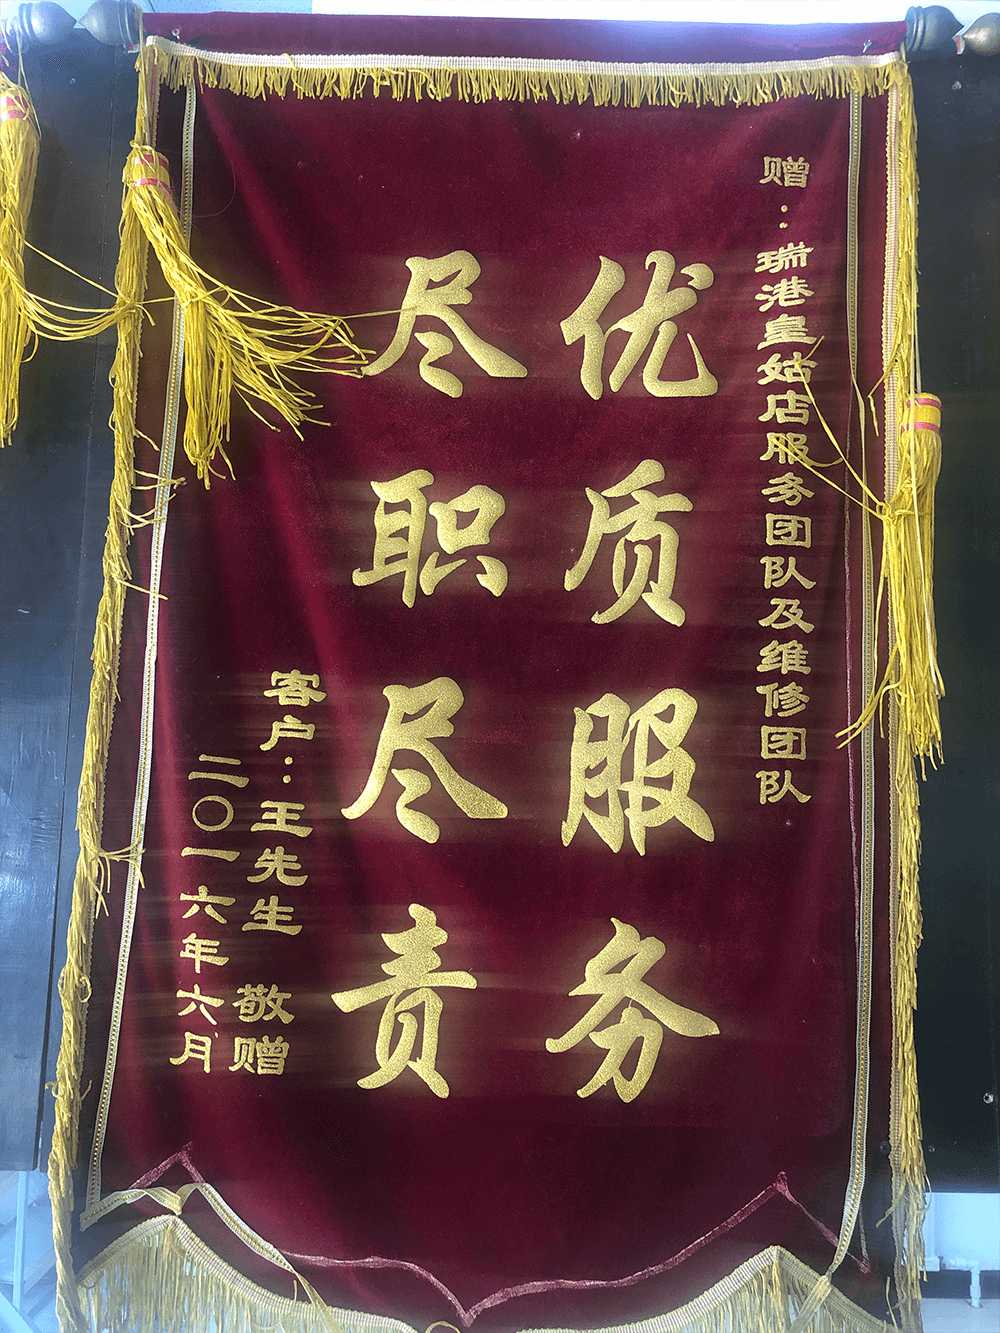 赠：瑞港皇姑店服务团队及维修团队
优质服务
尽职尽责
客户：王先生 敬赠
二〇一六年六月